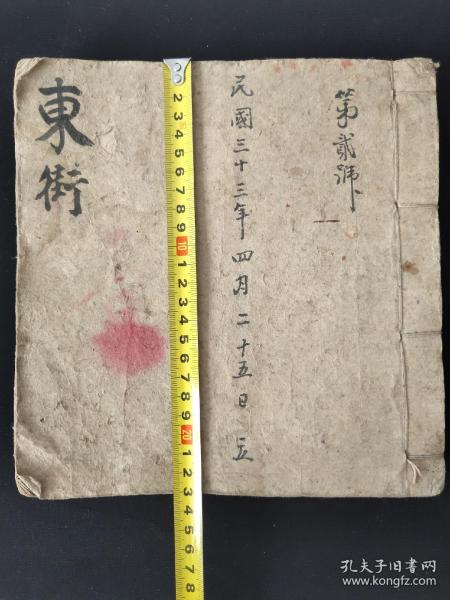 第貳號
民國三十三年四月二十五日立
東街
2 3 4 5 6 7 8 9 10 1 2 3 4 5 6 7 8 9 20 1 2 3 4 5 6 7 8
孔夫子旧书网
www.kongfz.com